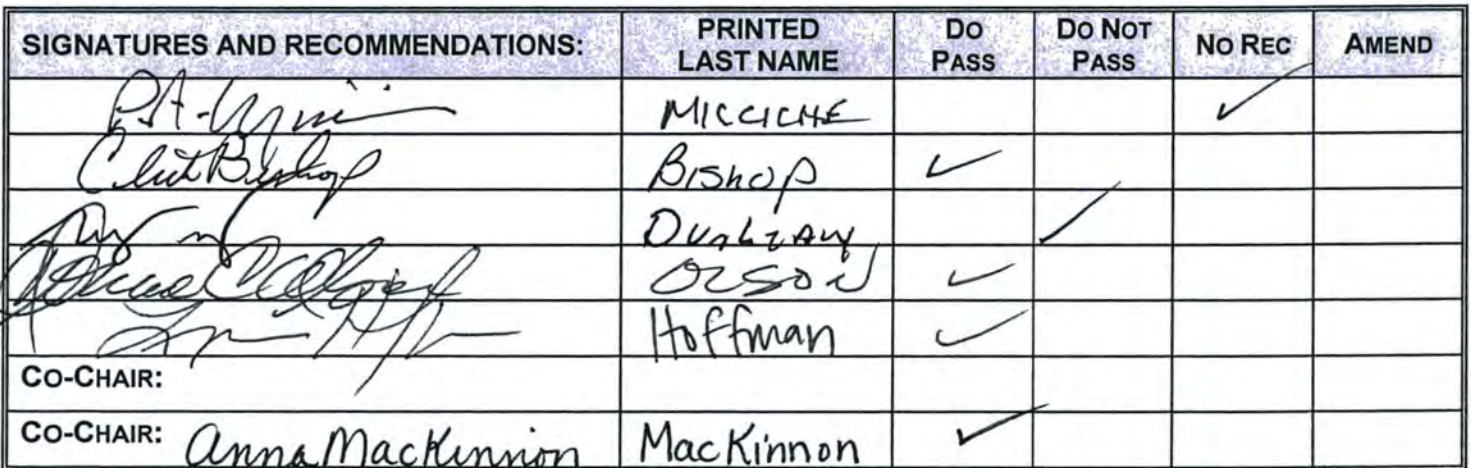 SIGNATURES AND RECOMMENDATIONS: PRINTED LAST NAME DO PASS DO NOT PASS NO REC AMEND
MICCICHE ✓
Clint Bishop BISHOP ✓
DUNLEAVY ✓
OLSON ✓
Hoffman ✓
CO-CHAIR:
CO-CHAIR: Anna MacKinnon MacKinnon ✓